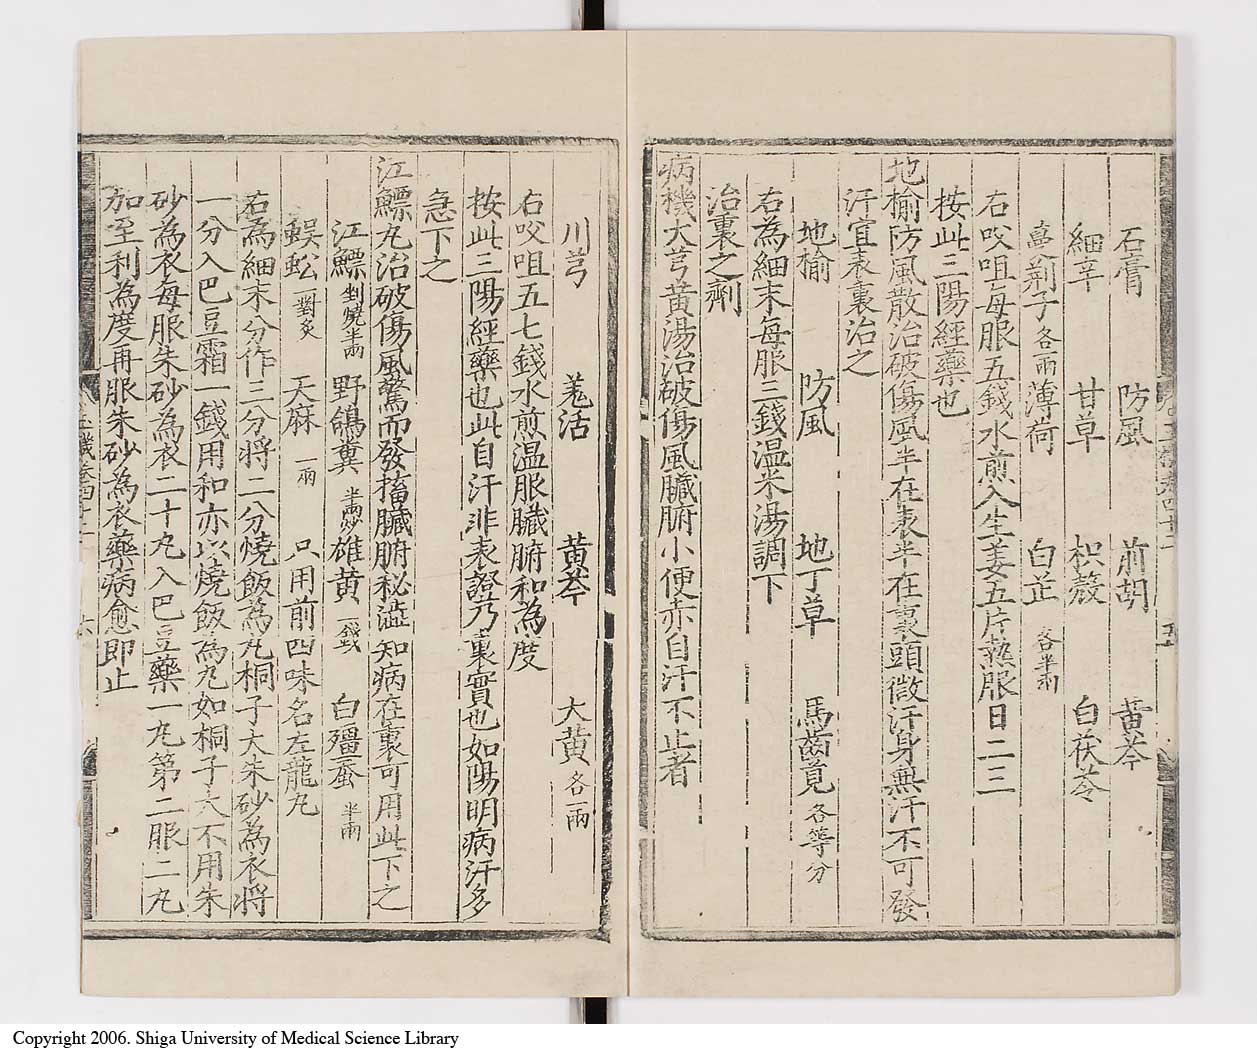 石膏　防風　前胡　黃芩
細辛　甘草　枳殼　白茯苓
蔓荊子各一兩薄荷　白芷各半兩
右㕮咀每服五錢水煎入生姜五片熱服日二三
按此三陽經藥也
地榆防風散治破傷風半在表半在裏頭微汗身無汗不可發
汗宜表裏治之
地榆　防風　地丁草　馬齒莧各等分
右為細末每服三錢溫米湯調下
治裏之劑
病機大芎黃湯治破傷風臟腑小便赤自汗不止者
川芎　羗活　黃芩　大黃各一兩
右㕮咀五七錢水煎溫服臟腑和為度
按此三陽經藥也此自汗非表證乃裏實也如陽明病汗多
急下之
江鰾丸治破傷風驚而發搐臟腑秘澁知病在裏可用此下之
江鰾剉燒半兩野鴿糞半兩炒雄黃一錢　白殭蚕半兩
蜈蚣一對炙　天麻一兩　只用前四味名左龍丸
右為細末分作三分將二分燒飯為丸桐子大朱砂為衣將
一分入巴豆霜一錢用和亦以燒飯為丸如桐子大不用朱
砂為衣每服朱砂為衣二十丸入巴豆藥一丸第二服二丸
加至利為度再服朱砂為衣藥病愈即止
Copyright 2006. Shiga University of Medical Science Library